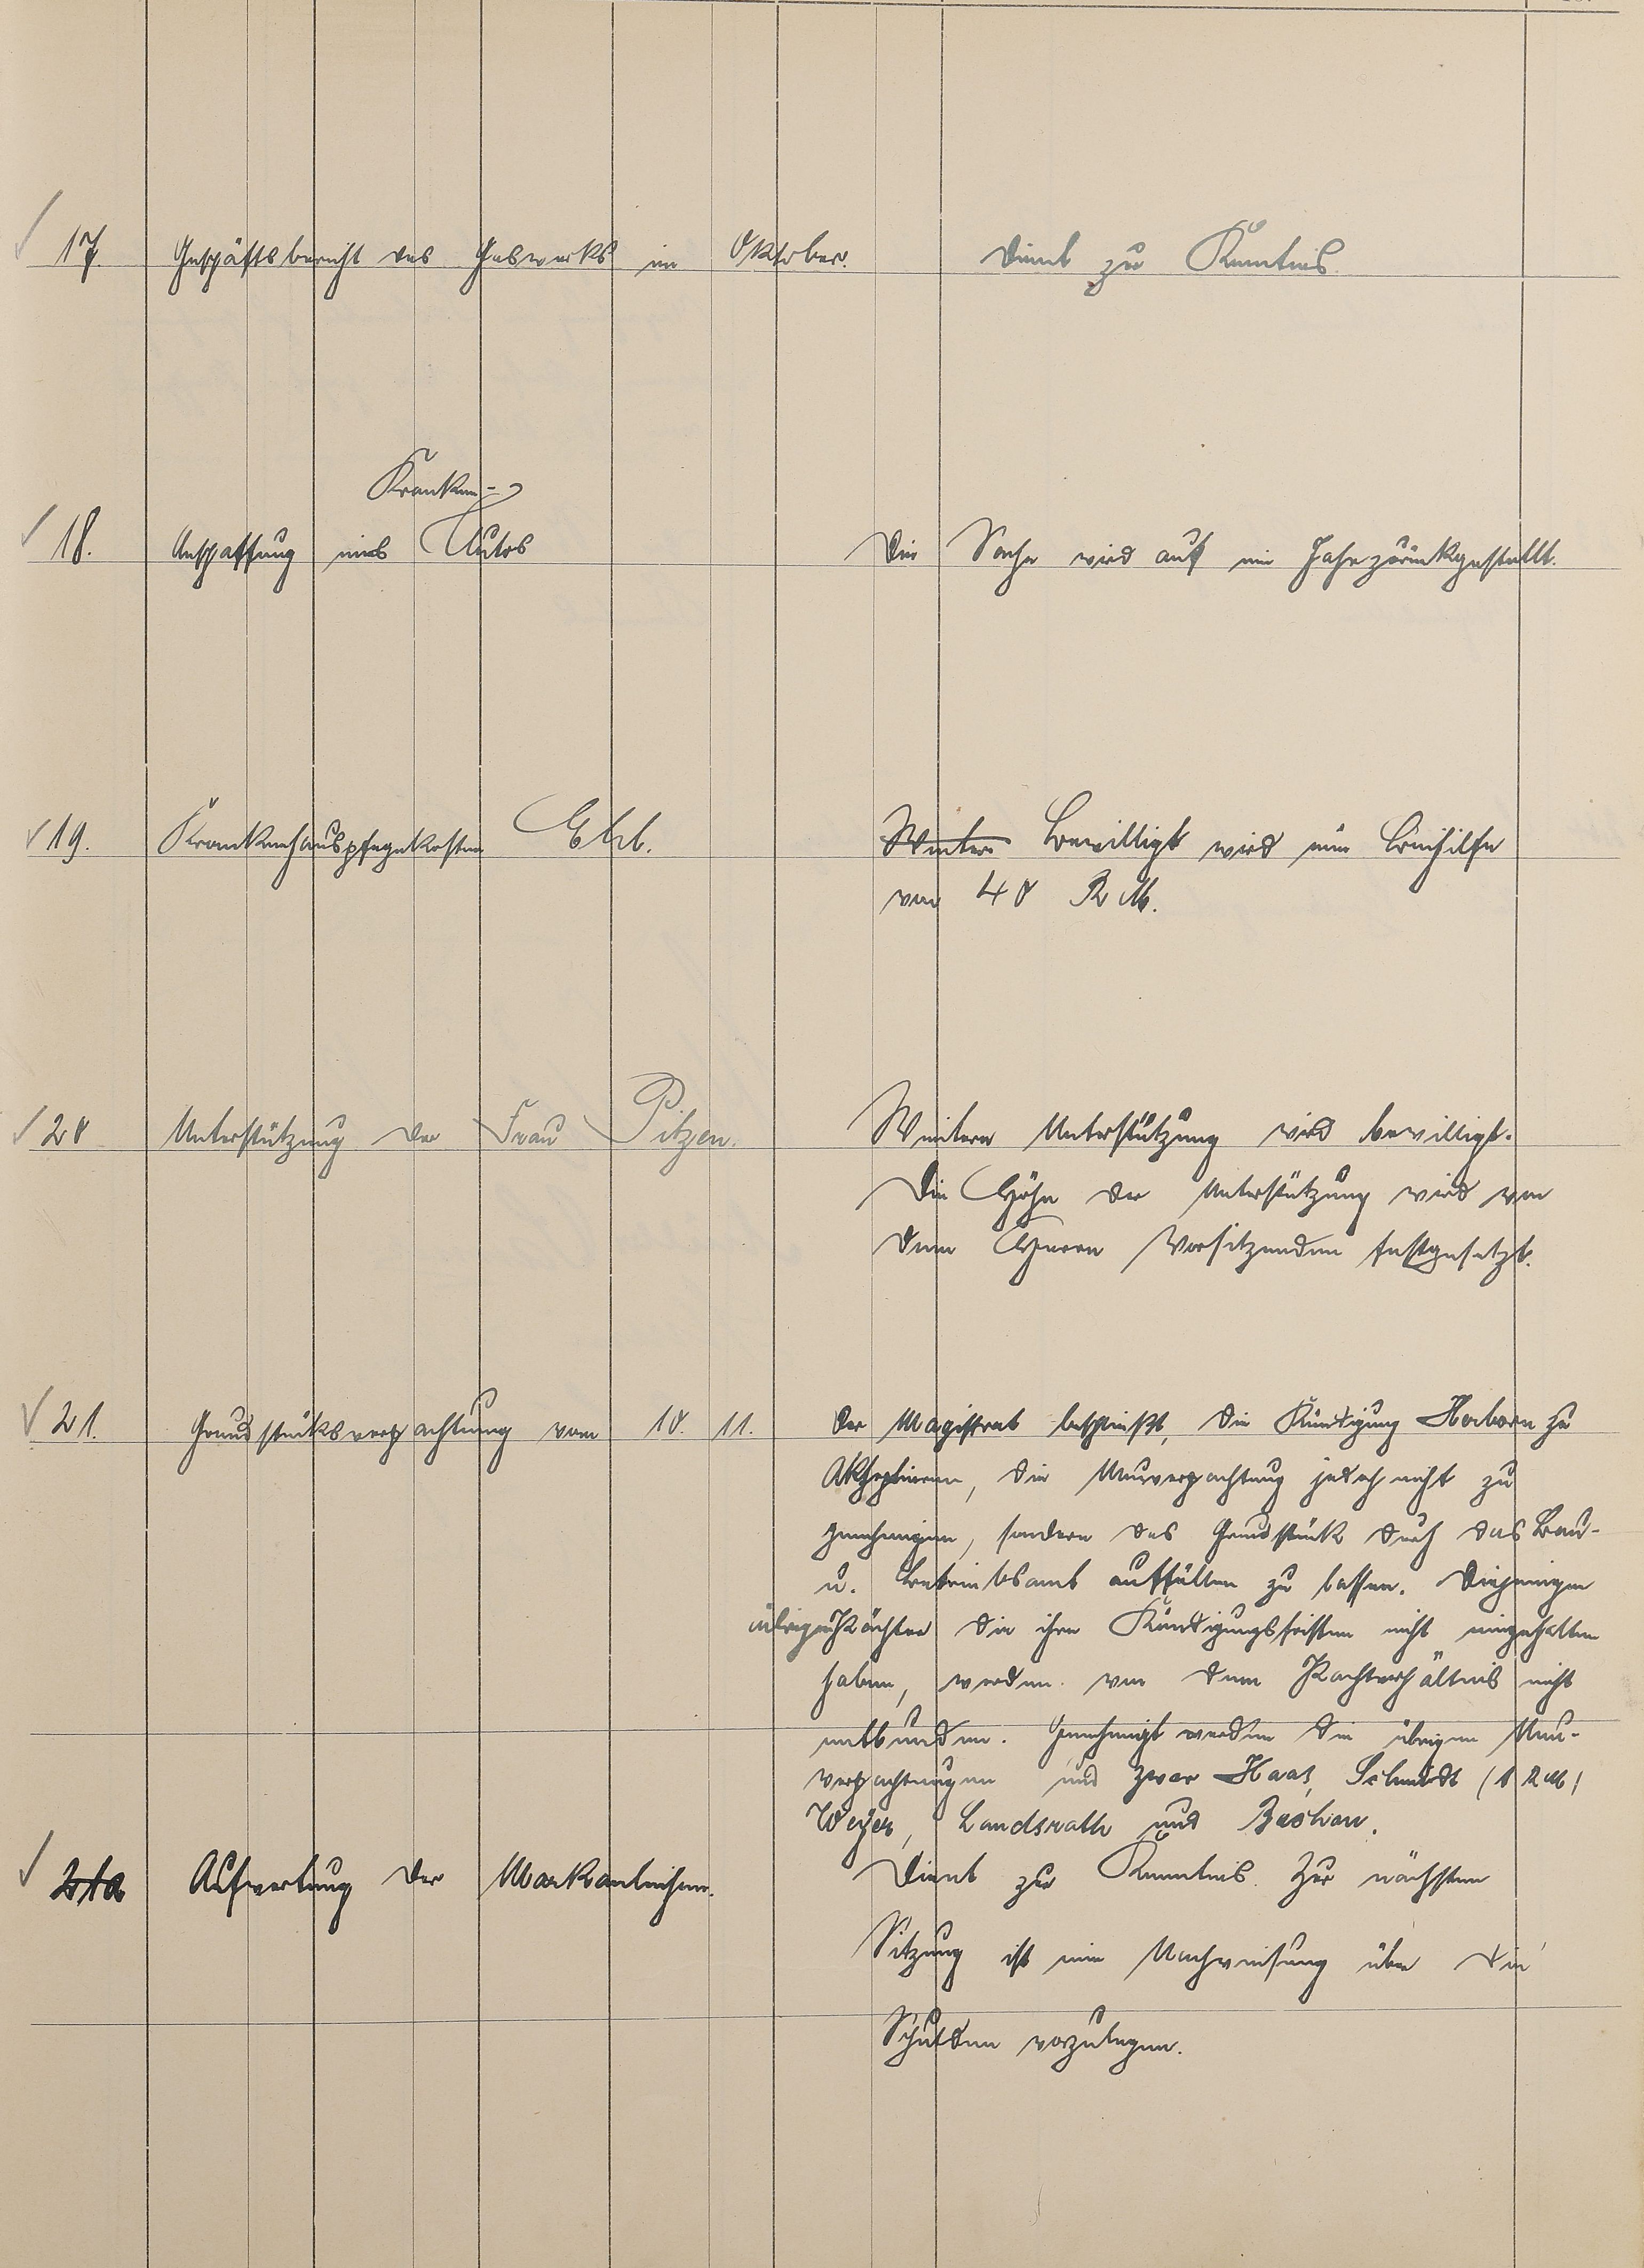 17. Geschäftsbericht des Gaswerks im Oktober.
Dient zur Kenntnis.
Kranken-
18. Anschaffung eines Autos
Die Sache wird auf ein Jahr zurückgestellt.
19. Krankenhauspflegekosten Ehl.
Weitere Bewilligt wird eine Beihilfe
von 40 RM.
20 Unterstützung der Frau Pitzen.
Weitere Unterstützung wird bewilligt.
Die Höhe der Unterstützung wird von
dem Herrn Vorsitzenden festgesetzt.
21. Grundstücksverpachtung vom 10. 11.
Der Magistrat beschließt, die Kündigung Horborn zu
Akzeptieren, die Neuverpachtung jedoch nicht zu
genehmigen, sondern das Grundstück durch das Bau-
u. Betriebsamt auffüllen zu lassen. Diejenigen
übrigen Pächter die ihre Kündigungsfristen nicht eingehalten
haben, werden von dem Pachtverhältnis nicht
entbunden. Genehmigt werden die übrigen Neu-
verpachtungen und zwar Haas, Schmidt (1 RM)
Weyer, Landsrath und Bastian.
21a Aufwertung der Markanleihen.
Dient zur Kenntnis. Zur nächsten
Sitzung ist eine Nachweisung über die
Schulden vorzulegen.